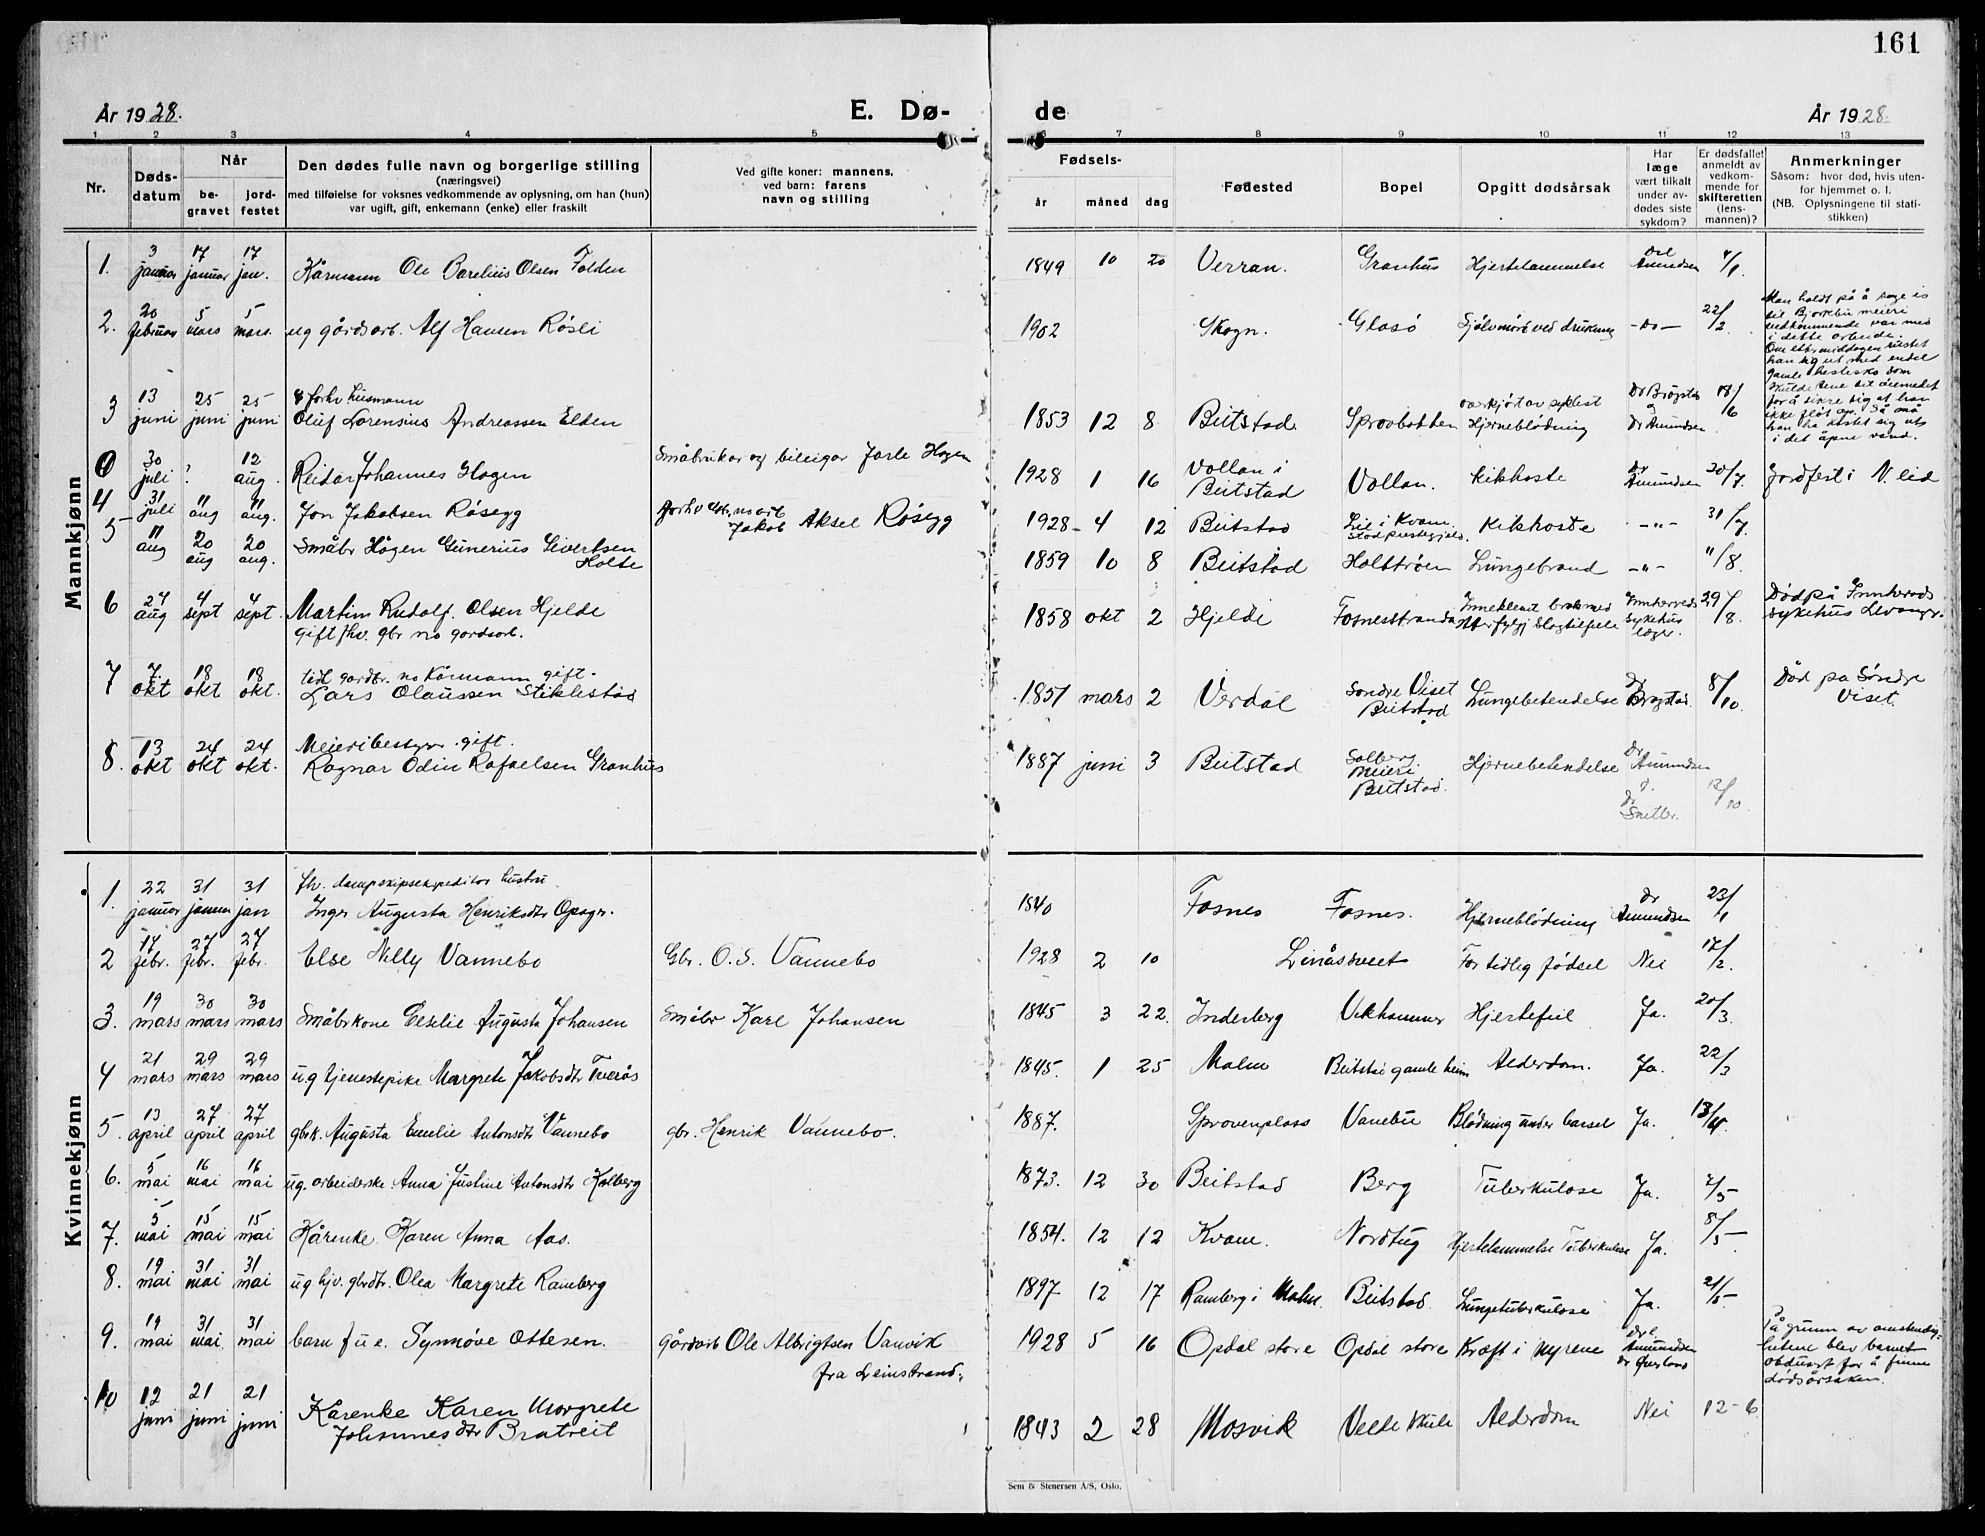 161
År 1928.
E. Dø-
de
År 1928.
1 2 3 4 5 6 7 8 9 10 11 12 13
Nr.
Døds-
datum
Når
be-
gravet
jord-
festet
Den dødes fulle navn og borgerlige stilling
(næringsvei)
med tilføielse for voksnes vedkommende av oplysning, om han (hun)
var ugift, gift, enkemann (enke) eller fraskilt
Ved gifte koner: mannens,
ved barn: farens
navn og stilling
Fødsels-
år måned dag
Fødested
Bopel
Opgitt dødsårsak
Har
læge
vært tilkalt
under av-
dødes siste
sykdom?
Er dødsfallet
anmeldt av
vedkom-
mende for
skifteretten
(lens-
mannen)?
Anmerkninger
Såsom: hvor død, hvis uten-
for hjemmet o. l.
(NB. Oplysningene til stati-
stikken)
Mannkjønn
1. 3 januar 17 januar 17 jan. Kårmann Ole Olsen Folden 1849 10 20 Verran. Granhus Hjertelammelse Amundsen 4/1
2. 20 februar 5 mars 5 mars. ug gårdsarb. Alf Hansen Røsli 1902 Skogn. Glosø Sjølvmord ved drukning -Do- 22/2
Man holdt på å kjøre is
til meieri
vedkommende var med
i dette arbeide.
Om ettermiddagen
han sig ut med endel
gamle hestesko som
skulde tene til
for å sikre sig at han
ikke fløt op. Så må
han ha kastet sig uti
i det åpne vand.
3 13 juni 25 juni 25 juni forhv husmann
Oluf Lorensius Andreassen Elden 1853 12 8 Beitstad Sprovbotten overkjørt av syklist
Hjerneblødning Dr Amundsen 18/6
0 30 juli ? 12 aug. Reidar Johannes Hagen Småbruker og bileigar Jarle Hagen 1928 1 16 Vollan i
Beitstad Vollan. Kikhoste Dr Amundsen 20/7 Jordfest i N. lid
4 31 juli 11 aug 11 aug. Jon Jakobsen Røsegg Jakob Aksel Røsegg 1928 4 12 Beitstad Lie i Kvam.
Stod prestegjeld. Kikhoste -"- 31/7
5 11 aug 20 aug 20 aug. Småbr Hågen Gunerius Sivertsen
Holte 1859 10 8 Beitstad Holttrøen Lungebrand -"- 11/8.
6 27 aug 4 sept 4 sept. Martin Rudolf Olsen Hjelde
gift fhv. gbr no gardsarb. 1858 okt 2 Hjelde Fosnesstranda Inneklemt brok med Innherred
sykehus
læger. 29/8. Død på Innherred
sykehus Levanger.
7 7. okt 18 okt 18 okt. tidl gardbr. no Kårmann gift.
Lars Olaussen Stiklestad 1851 mars 2 Verdal Søndre Viset
Beitstad Lungebetendelse dr
Brøgstad. 8/10. Død på Søndre
Viset.
8. 13 okt 24 okt 24 okt. Meieribestyrer gift.
Ragnar Odin Rafaelsen Granhus 1887 juni 3 Beitstad Solberg
Meieri
Beitstad. Hjernebetendelse Dr
Amundsen 13/10
Kvinnekjønn
1. 22 januar 31 januar 31 jan fhv. dampskipsexpeditør hustru
Inger Augusta Henriksdtr 1840 Fosnes Fosnes. Hjerneblødning Dr
Amundsen 23/1
2 17 febr. 27 febr. 27 febr. Else Nelly Vannebo Gbr. O. S. Vannebo 1928 2 10 Linåstveet For tidlig fødsel Nei 17/2.
3. 19 mars 30 mars 30 mars Småbrkone Elselie Augusta Johansen Småbr Karl Johansen 1845 3 22. Inderberg Vikhammer Hjertefeil Ja. 20/3.
4 21 mars 29 mars 29 mars ug tjenestepike Margrete Jakobsdtr Tverås 1845. 1 25 Malm Beitstad gamleheim Alderdom. Ja. 22/3
5. 13 april 27 april 27 april gbrk. Augusta Emelie Antonsdtr Vannebo gbr. Henrik Vannebo. 1887. Sprovenplass Vanebu Blødning under barsel Ja. 13/4.
6. 5 mai 16 mai 16 mai ug. arbeiderske Anna Justine Antonsdtr Kolberg 1873. 12 30 Beitstad Berg Tuberkulose Ja. 7/5
7. 5 mai 15 mai 15 mai Kårenke Karen Anna Aas. 1854. 12 12 Kvam. Nordtug Hjertelammelse Tuberkulose Ja. 8/5
8. 19 mai 31 mai 31 mai ug hjv. gbrdtr. Olea Margrete Ramberg 1897 12 17 Ramberg i Malm. Beitstad Lungetuberkulose Ja. 21/5
9. 19 mai 31 mai. 31 mai barn f u e. Synnøve Ottesen. Gårdarb Ole Albrigtsen Vanvik
fra Leinstrand. 1928 5 16 Opdal store Opdal store Kræft i nyrene Amundsen
dr Overland På grunn av omstendig-
hetene blev barnet
obdusert for å finne
dødsårsaken.
10 12 juni 21 juni 21 juni Kårenke Karen Margrete
Johannesdtr Bratreit 1843 2 28 Mosvik Velde skule Alderdom Nei 12-6
Sem & Stenersen A/S, Oslo.